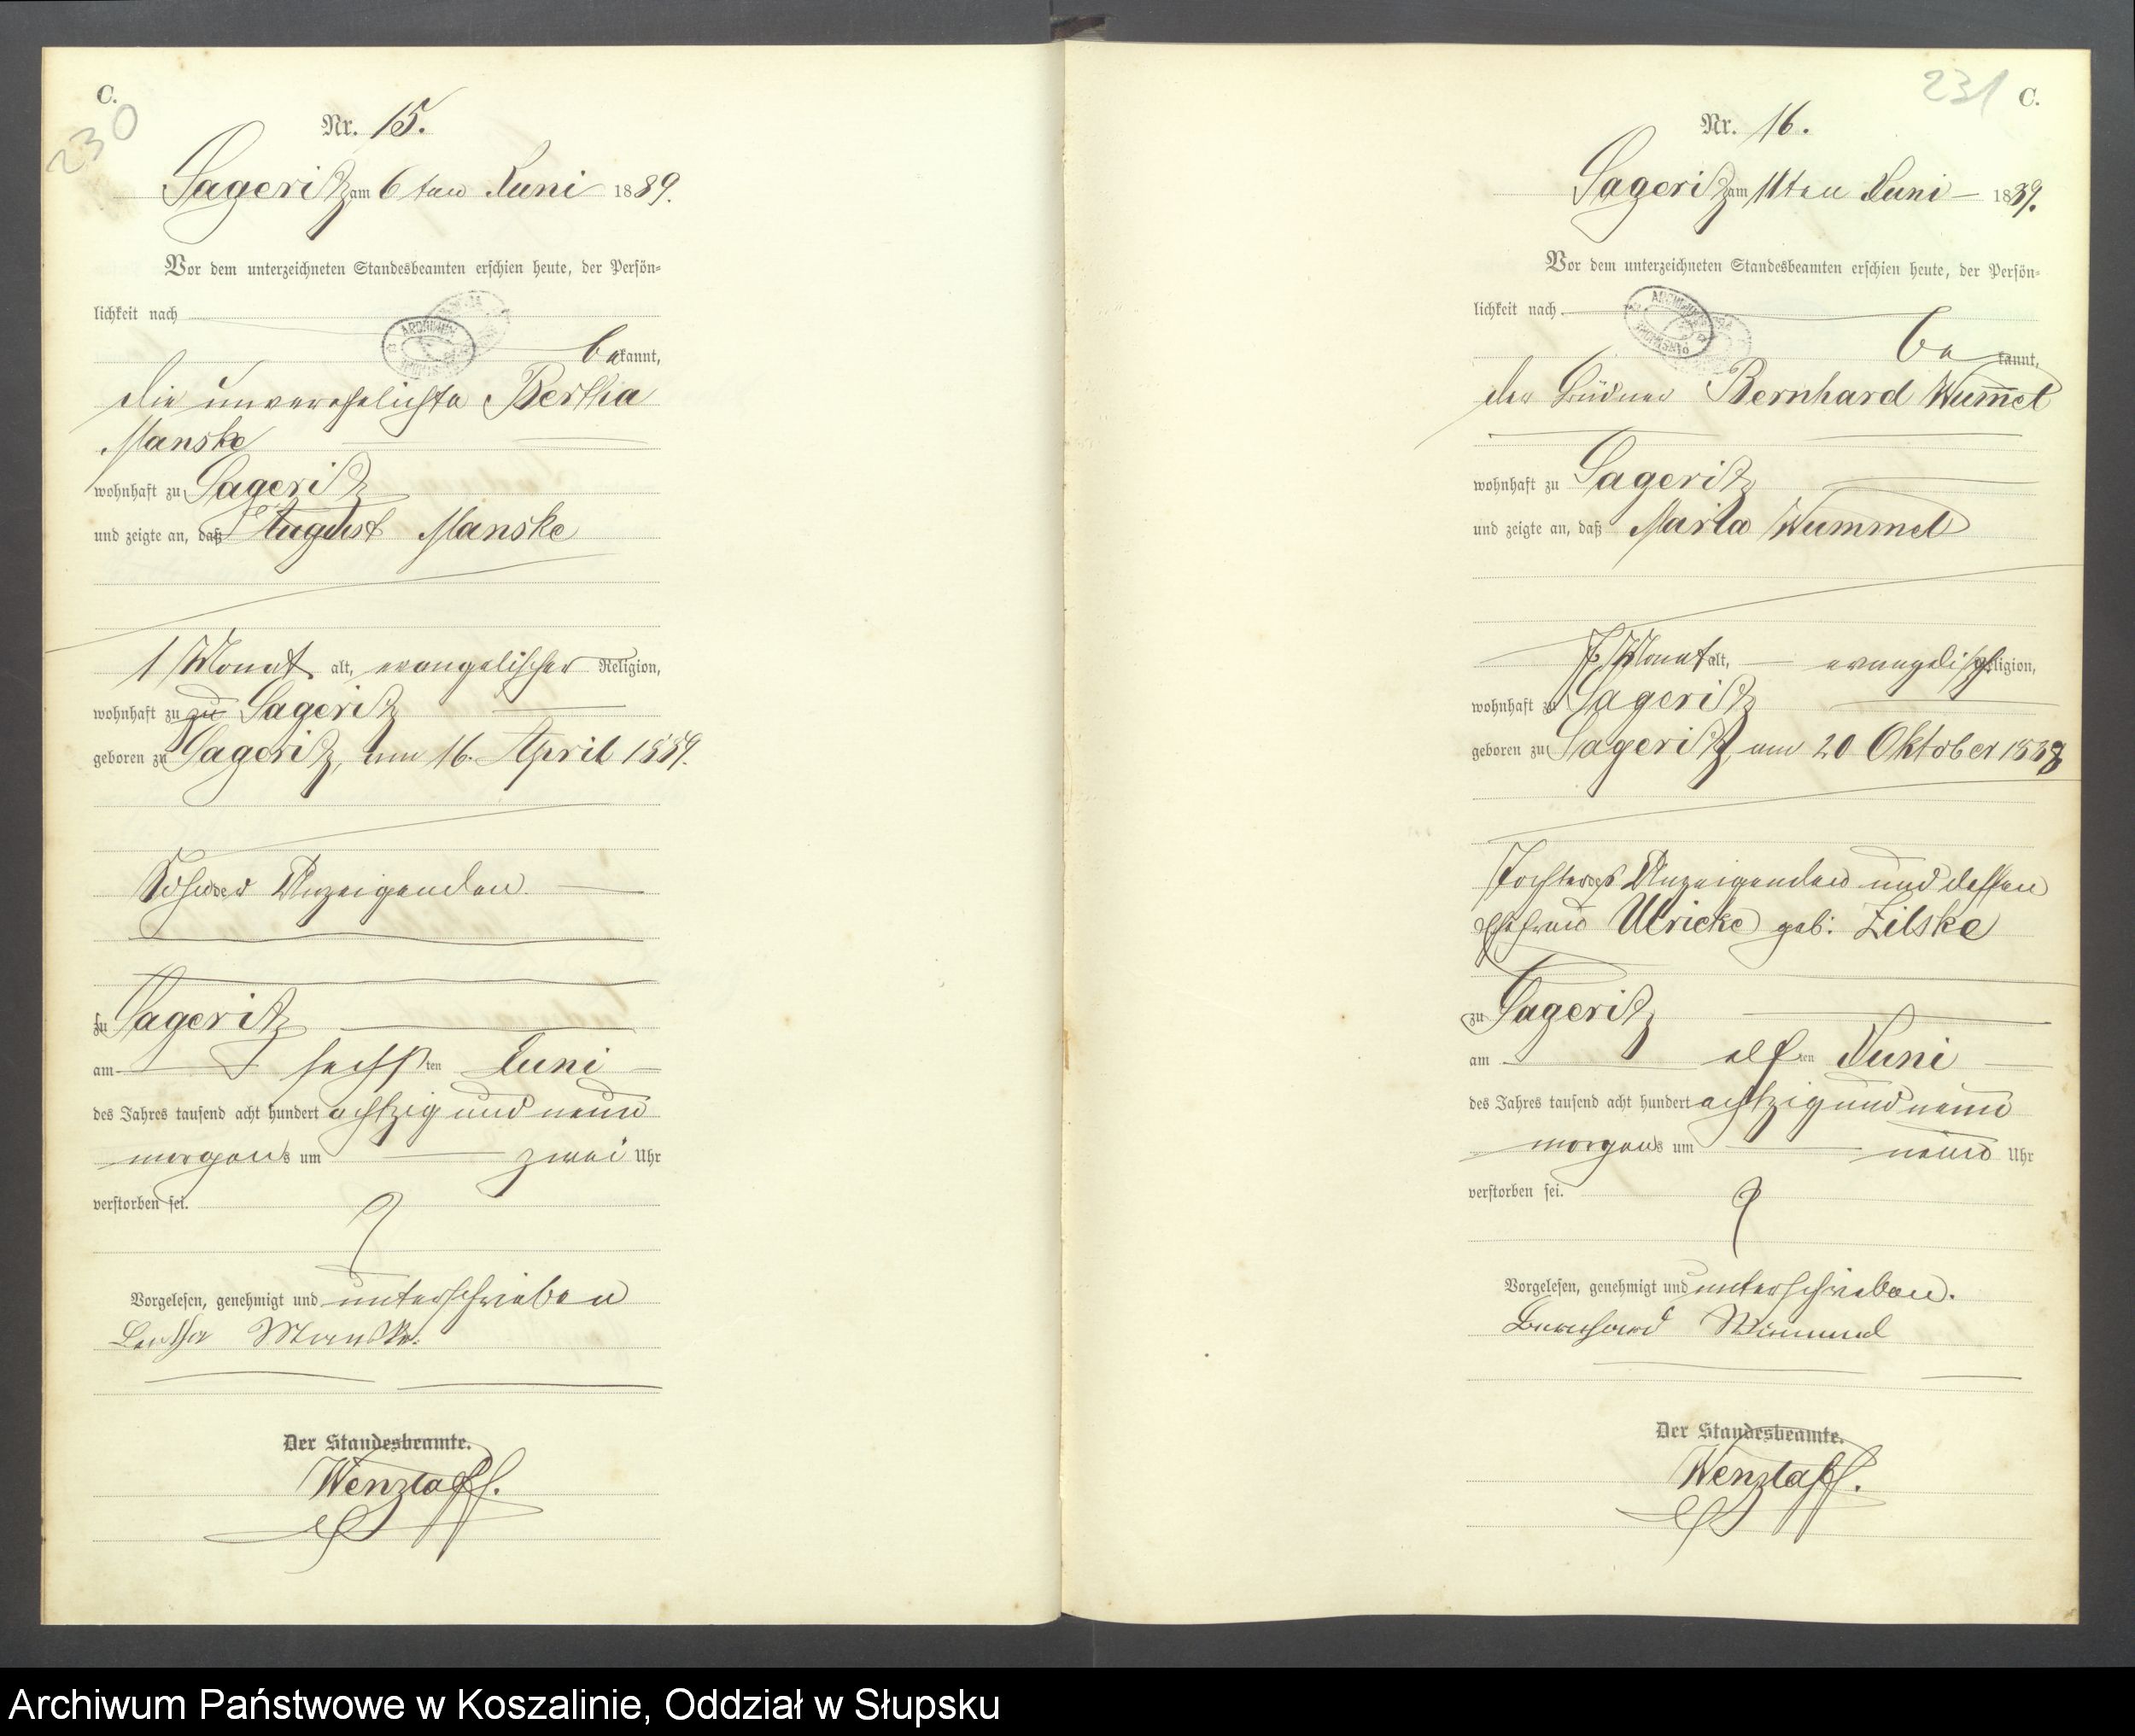 C.
230
Nr. 15.
Sageritz am 6ten Juni 1889.
Vor dem unterzeichneten Standesbeamten erschien heute, der Persön-
lichkeit nach
bekannt,
die unverehelichte Bertha
Manske
wohnhaft zu Sageritz
und zeigte an, daß August Manske
1 Monat alt, evangelischer Religion,
wohnhaft zu zu Sageritz
geboren zu Sageritz, am 16. April 1889.
Sohn der Anzeigenden
zu Sageritz
am sechsten Juni
des Jahres tausend acht hundert achtzig und neun
morgens um zwei Uhr
verstorben sei.
Vorgelesen, genehmigt und unterschrieben
Bertha Manske.
Der Standesbeamte.
Wenzlaff.
231 C.
Nr. 16.
Sageritz am 11ten Juni 1889.
Vor dem unterzeichneten Standesbeamten erschien heute, der Persön-
lichkeit nach
bekannt,
der Büdner Bernhard Wum̅el
wohnhaft zu Sageritz
und zeigte an, daß Maria Wummel
7 Monat alt, evangelisch Religion,
wohnhaft zu Sageritz
geboren zu Sageritz, am 20 Oktober 1888
Tochter des Anzeigenden und dessen
Ehefrau Ulricke geb: Zilske
zu Sageritz
am elften Juni
des Jahres tausend acht hundert achtzig und neun
morgens um neun Uhr
verstorben sei.
Vorgelesen, genehmigt und unterschrieben.
Bernhard Wummel
Der Standesbeamte.
Wenzlaff.
Archiwum Państwowe w Koszalinie, Oddział w Słupsku